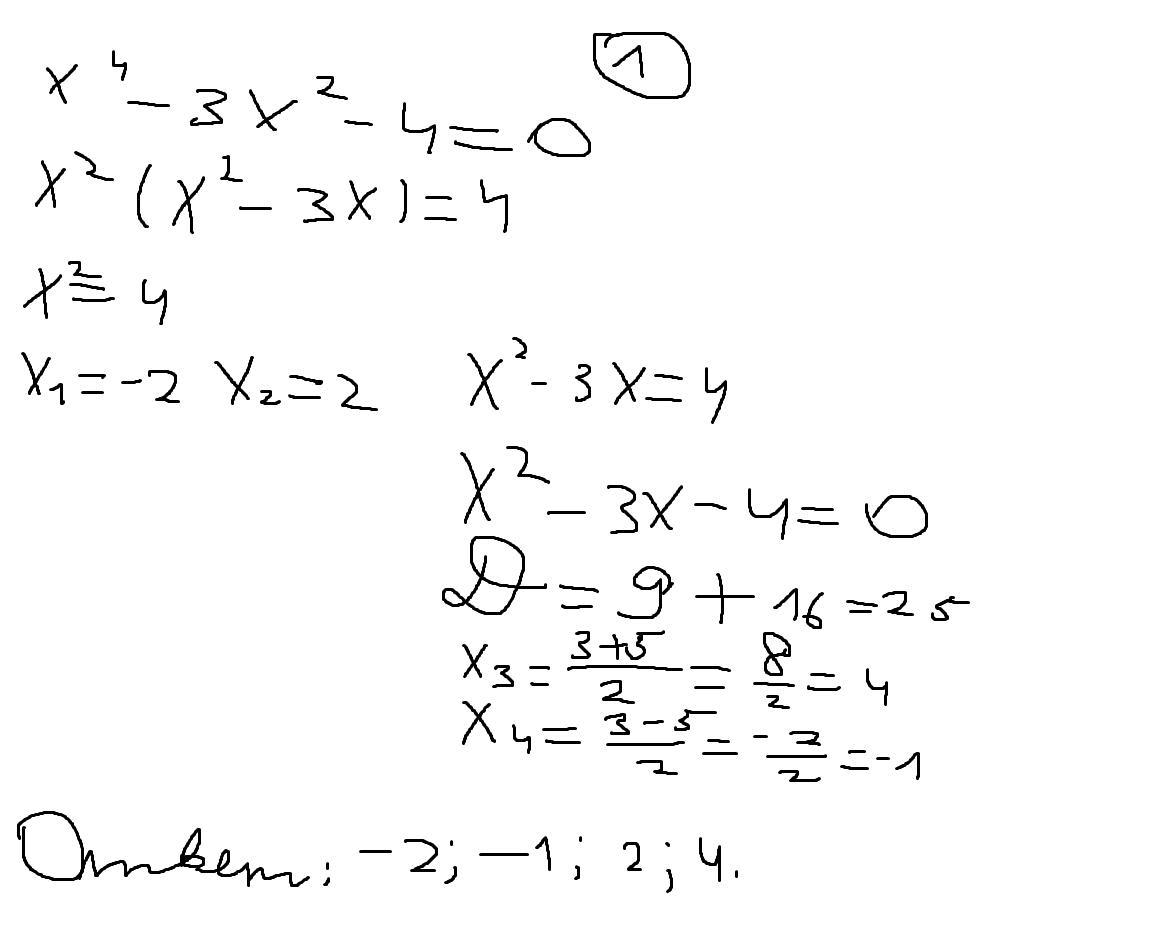 1
x⁴ - 3x² - 4 = 0
x² (x² - 3x) = 4
x² = 4
x₁ = -2 x₂ = 2
x² - 3x = 4
x² - 3x - 4 = 0
D = 9 + 16 = 25
x₃ = (3+5)/2 = 8/2 = 4
x₄ = (3-5)/2 = -2/2 = -1
Ответ: -2; -1; 2; 4.